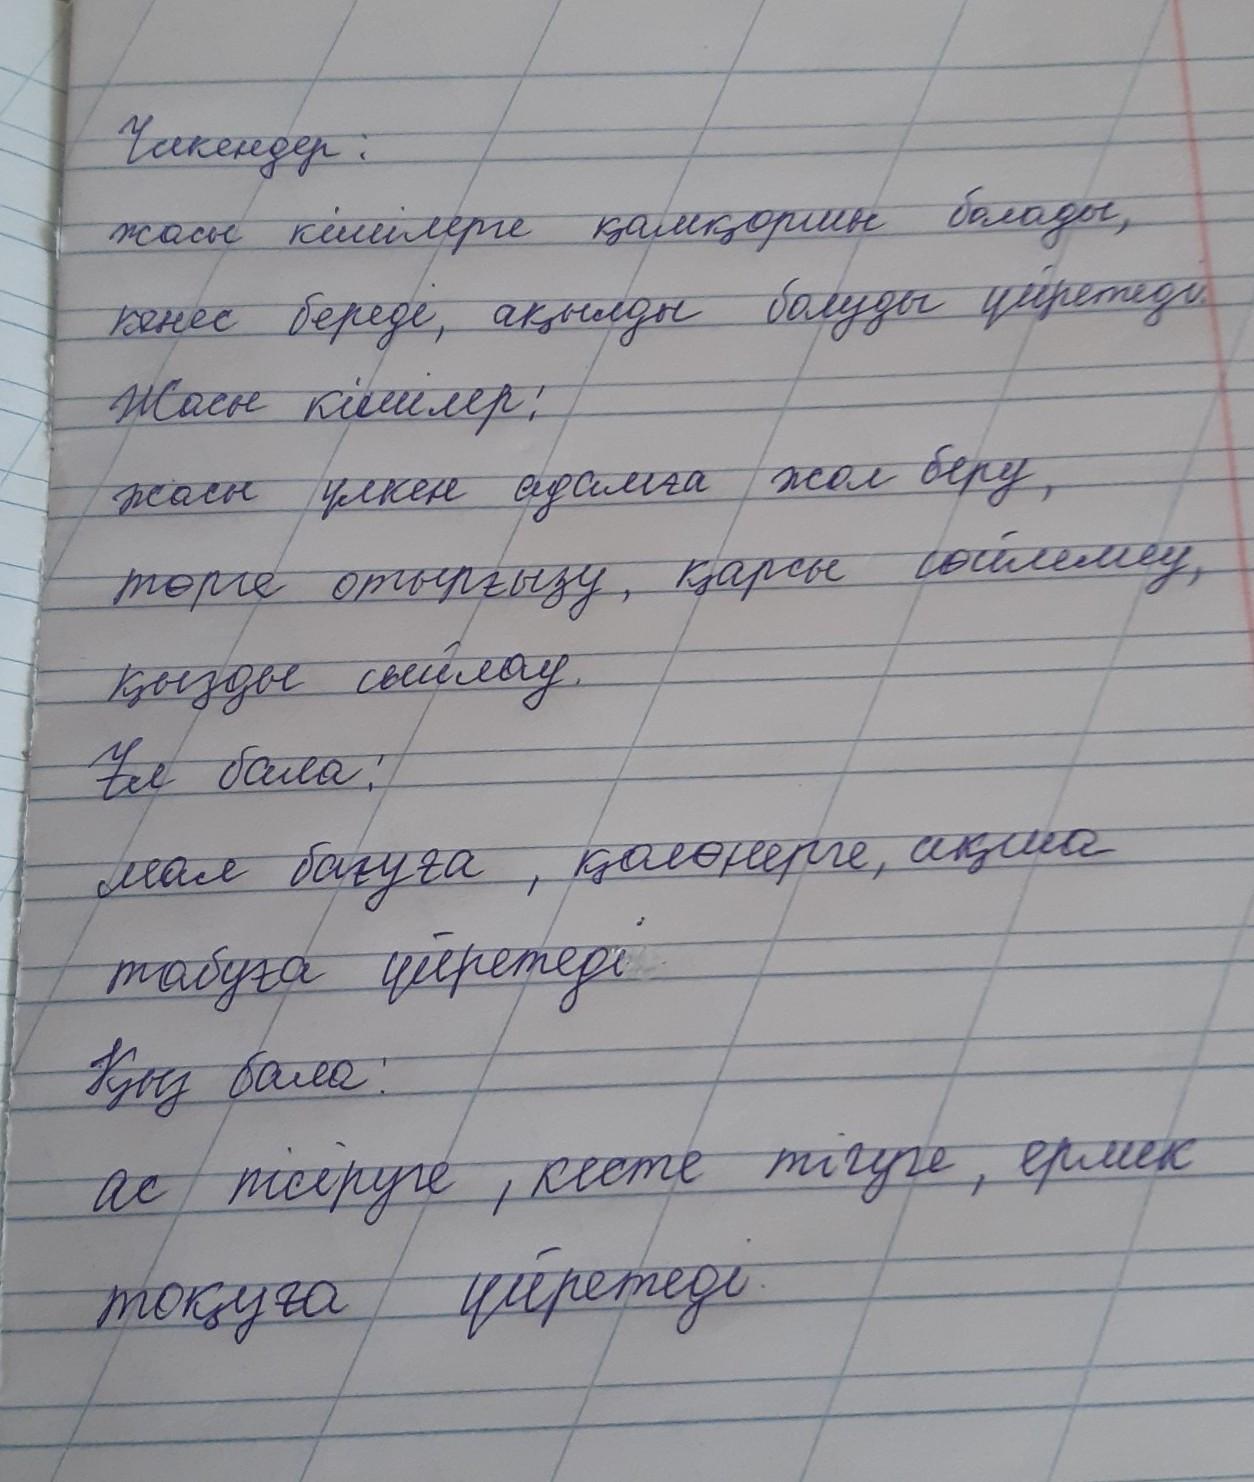 Үлкендер:
жасы кішілерге қамқоршы болады,
кенес береді, ақылды болуды үйретеді.
Жасы кішілер:
жасы үлкен адамға жол беру,
төрге отырғызу, қарсы сөйлемеу,
қызды сыйлау.
Ұл бала:
мал бағуға, қолөнерге, ақша
табуға үйретеді
Қыз бала:
ас пісіруге, кесте тігуге, ермек
тоқуға үйретеді.